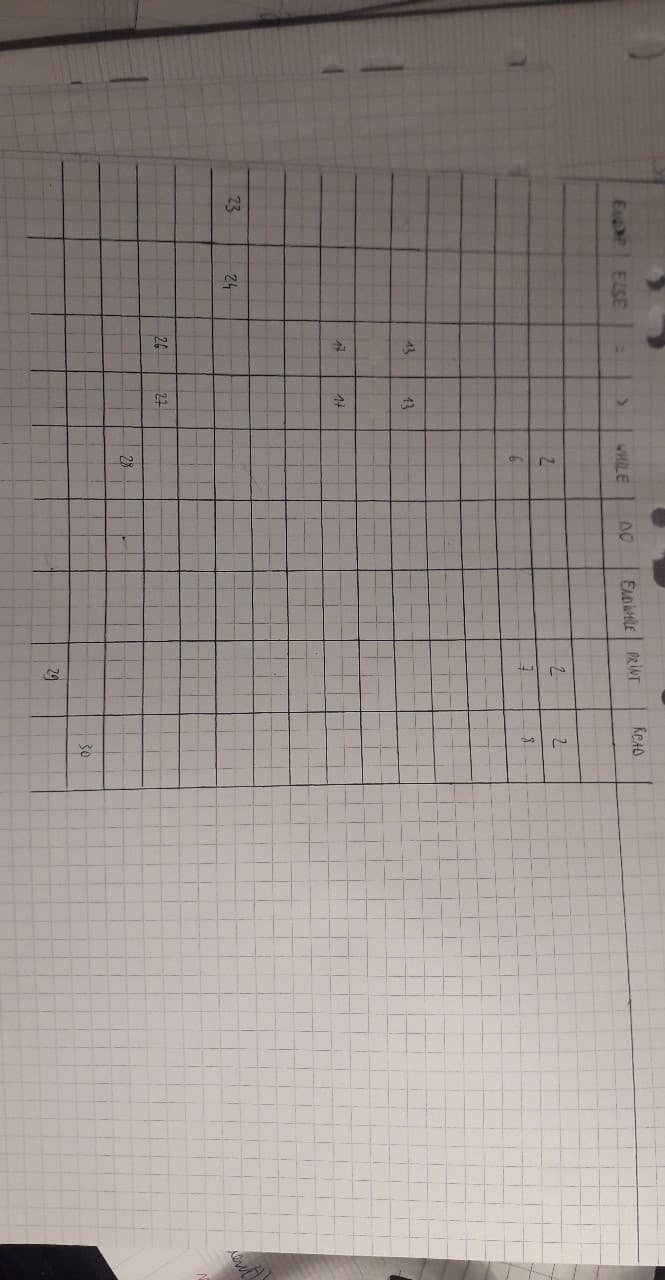 ENDIF | ELSE | = | > | WHILE | DO | ENDWHILE | PRINT | READ
2 2 2
6 7 8
13 13
17 17
23 24
26 27
28
30
29